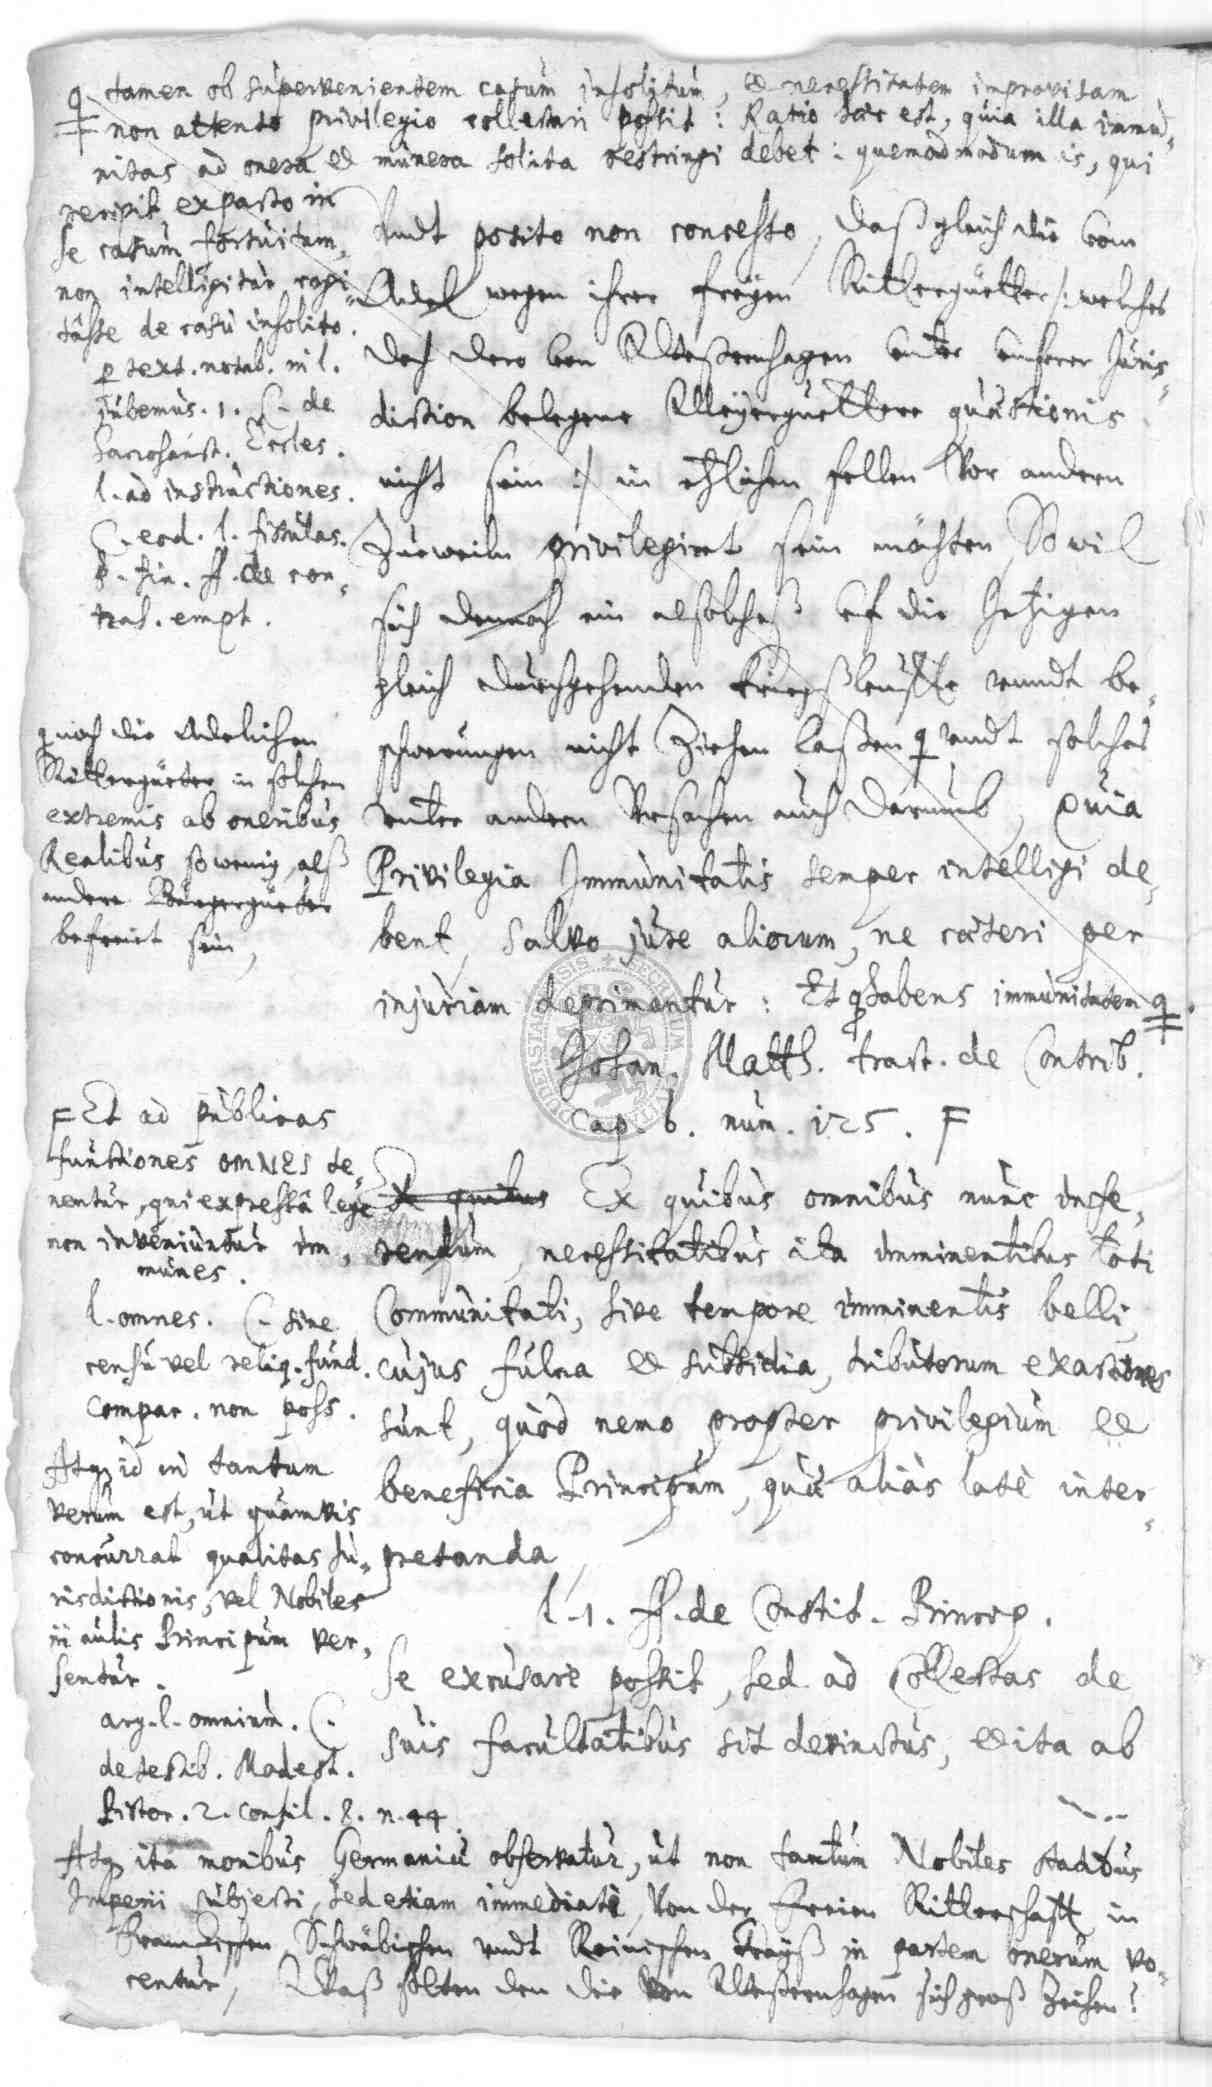 q tamen ob supervenientem casum insolitum, et necessitatem improvisam
non attento privilegio collectari possit: Ratio haec est, quia illa immu=
nitas ad onera et munera solita restringi debet: quemadmodum is, qui
recipit, ex pacto in
se casum fortuitum,
non intelligitur cogi=
tasse de casu insolito.
p text. notab. in l.
jubemus. 1. C. de
sacrosanct. Eccles.
l. ad instructiones.
C. eod. l. fistulas.
§. fin. ff. de con=
trah. empt.
Undt posito non concesso, daß gleich die vom
Adel wegen ihrer freyen Rittergüetter /: welches
doch dero von Alteßernhagen unter unserer Juris=
diction belegene Meyerguettere quaestionis
nicht sein :/ in etzlichen fellen vor andern
Zurweiln privilegiret sein möchten, So wil
sich dennoch ein alsolches uf die Jetzigen
gleich durchgehenden kriegßleuffte unndt be=
schwerungen nicht Ziehen laßen q undt solches
unter andern Ursachen auch darumb, Quia
Privilegia Immunitatis semper intelligi de=
bent, salvo jure aliorum, ne caeteri per
injuriam deprimantur: Et q habens immunitatem q
Johan. Matth. tract. de Contrib.
cap. 6. num. 125. F
q noch die Adelichen
Rittergüeter in solchen
extremis ab oneribus
Realibus so wenig, alß
andere Bürgergüeter
befreiet sein,
F Et ad publicas
functiones omnes te=
nentur, qui expressâ lege
non inveniuntur im=
munes.
l. omnes. C. sine
censu vel reliq. fund.
compar. non poss.
Atq id in tantum
verum est, ut quamvis
concurrat qualitas Ju=
risdictionis, vel Nobiles
in aulis Principum ver=
sentur.
arg. l. omnium. C.
de testib. Modest.
Pistor. 2. consil. 8. n. 44.
Ex quibus Ex quibus omnibus nunc infe=
rendum, necessitatibus ita imminentibus toti
Communitati, sive tempore imminentis belli,
cujus fulcra et subsidia, tributorum exactiones
sunt, quod nemo propter privilegium et
beneficia Principum, quae alias latè inter=
pretanda,
l. 1. ff. de Constit. Princip.
se excusare possit, sed ad Collectas de
suis facultatibus sit devinctus, et ita ab
Atq ita moribus Germaniae observatur, ut non tantum Nobiles statibus
Imperii subjecti, sed etiam immediati, Von der Freien Ritterschafft in
Franckischen, Schwäbischen undt Reinischen Crayß in partem onerum vo=
centur, Waß solten den die von Alteßernhagen sich groß Zeihen?